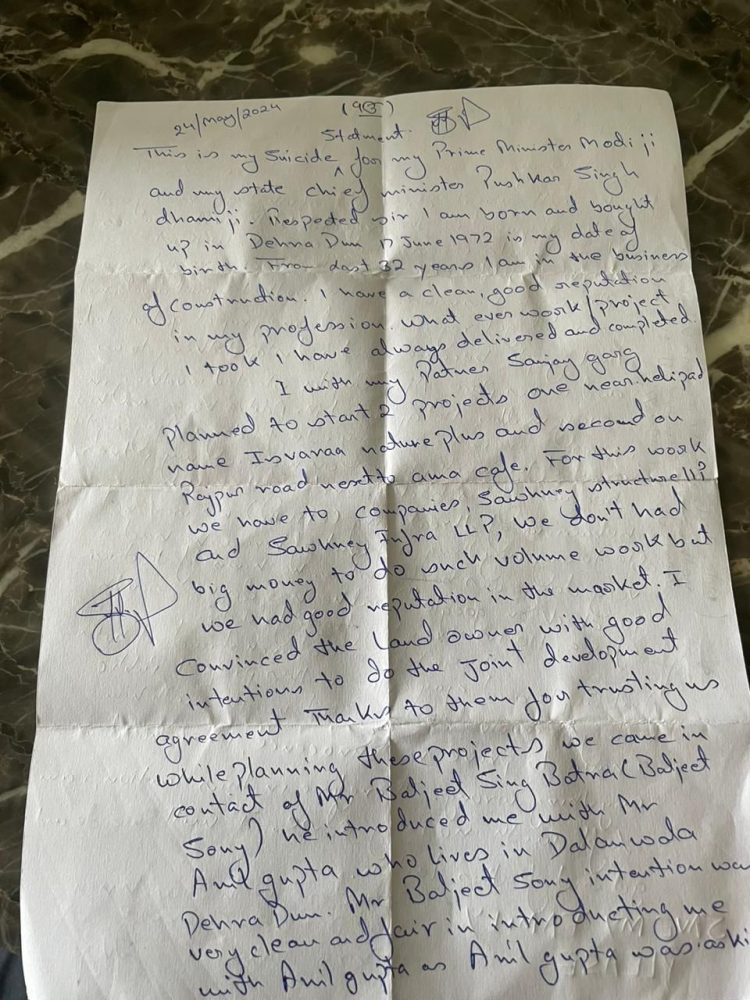 24/May/2024
Statment
This is my Suicide ^ for my Prime Minister Modi ji
and my state chief minister Pushkar Singh
dhami ji. Respected sir I am born and bought
up in Dehra Dun 17 June 1972 is my date of
birth. From last 32 years I am in the business
of construction. I have a clean, good reputation
in my profession. What ever work/project
I took I have always delivered and completed.
I with my Patner Sanjay garg
Planned to start 2 projects one near helipad
name Isvaraa nature plus and second on
Raypur road nextto ama cafe. For this work
we have to companies, Sawhney structurellP
and Sawhney Infra LLP, we don't had
big money to do such volume work but
we had good reputation in the market. I
Convinced the Land owner with good
intentions to do the joint development
agreement Thanks to them for trusting us
while planning these projects we came in
contact of Mr Baljeet Sing Batra (Baljeet
Sony) he introduced me with Mr
Anil gupta who lives in Dalanwola
Dehra Dun. Mr Baljeet Sony intention was
very clean and fair in introducting me
with Anil gupta as Anil gupta was aski